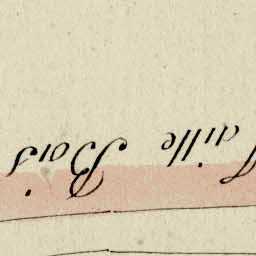 Taille Bois